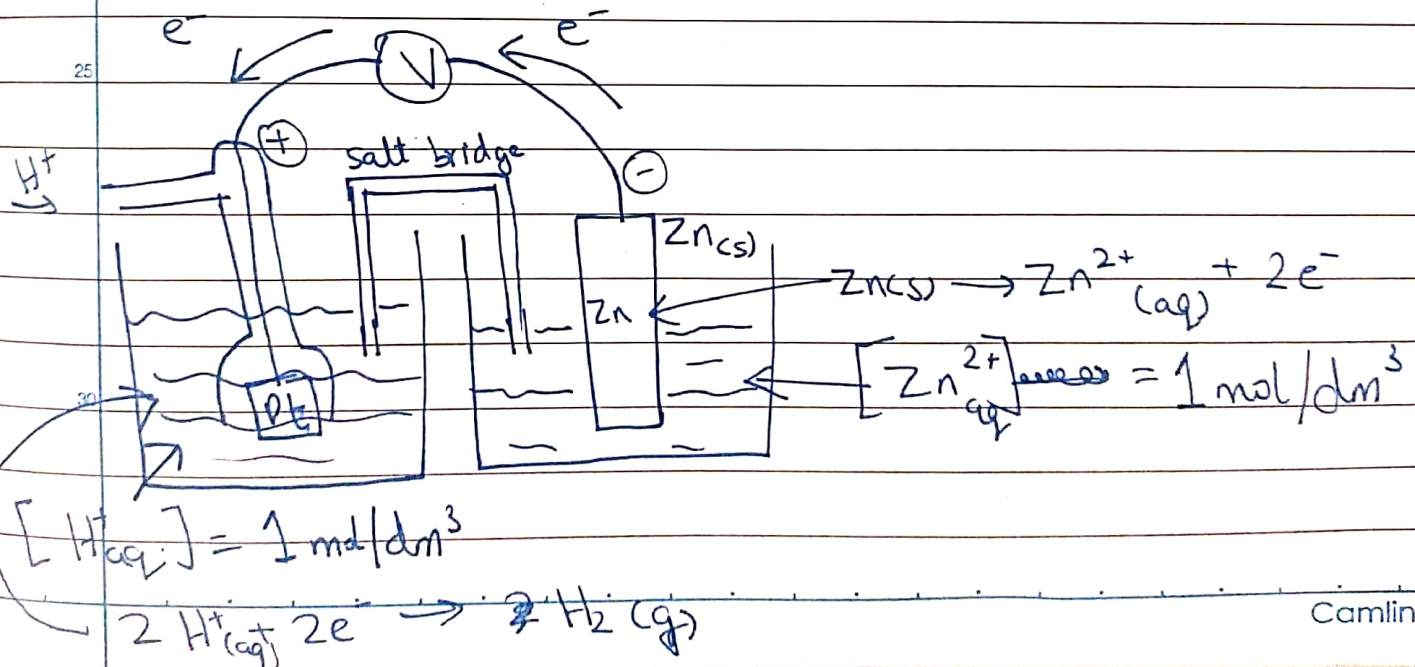 e⁻ e⁻
25
V
H⁺
+
salt bridge
−
Zn(s)
Zn
Zn(s) → Zn²⁺(aq) + 2e⁻
[Zn²⁺aq] = 1 mol/dm³
30
Pt
[H⁺aq.] = 1 mol/dm³
2 H⁺(aq)+ 2e → H₂ (g)
Camlin